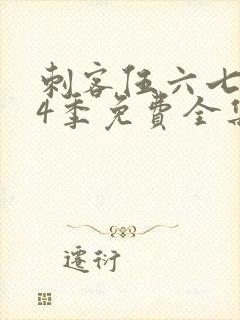 刺客伍六七
4季免費全集
遷衍